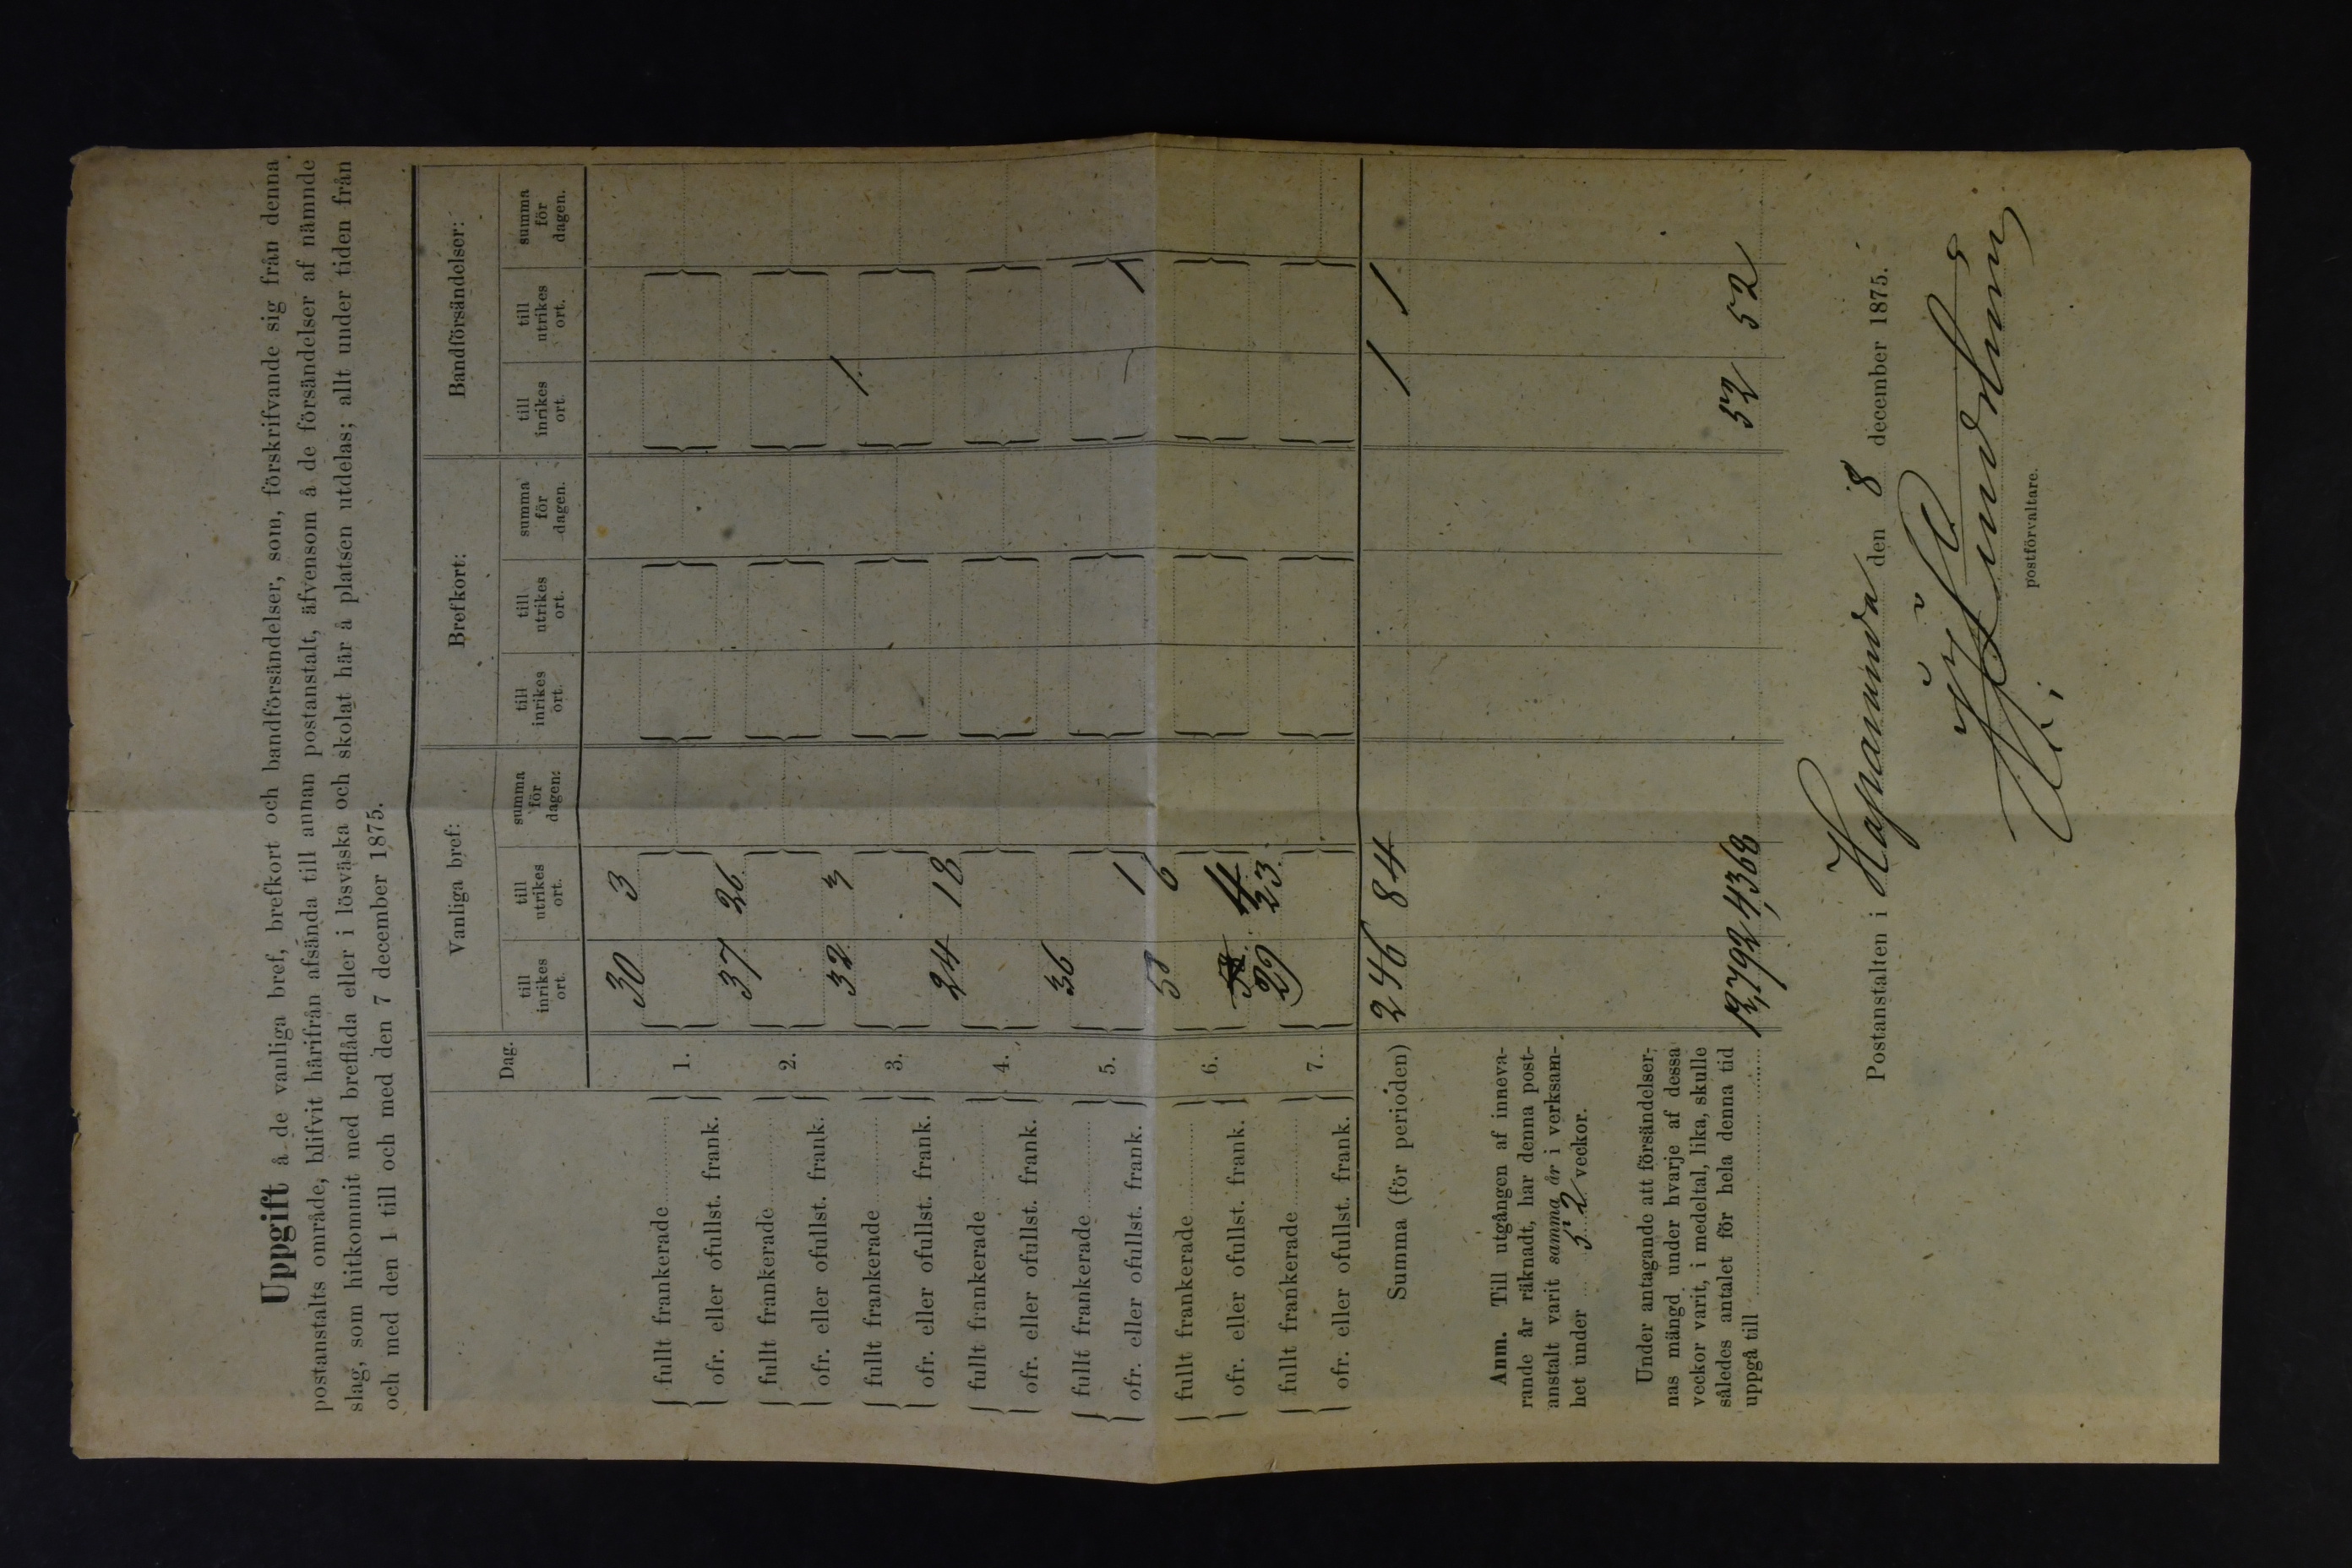 Uppgift å de vanliga bref, brefkort och bandförsändelser, som, förskrifvande sig från denna
postanstalts område, blifvit härifrån afsända till annan postanstalt, äfvensom å de försändelser af nämnde
slag, som hitkommit med breflåda eller i lösväska och skolat här å platsen utdelas; allt under tiden från
och med den 1 till och med den 7 december 1875.
Dag. Vanliga bref: Brefkort: Bandförsändelser:
till inrikes ort. till utrikes ort. summa för dagen. till inrikes ort. till utrikes ort. summa för dagen. till inrikes ort. till utrikes ort. summa för dagen.
30 3
fullt frankerade 1.
ofr. eller ofullst. frank. 37 26
fullt frankerade 2.
ofr. eller ofullst. frank. 32 7 1
fullt frankerade 3.
ofr. eller ofullst. frank. 24 18
fullt frankerade 4.
ofr. eller ofullst. frank. 36
fullt frankerade 5.
ofr. eller ofullst. frank. 1 1
58 6
fullt frankerade 6.
ofr. eller ofullst. frank.
29 23
fullt frankerade 7.
ofr. eller ofullst. frank.
Summa (för perioden) 246 84 1 1
Anm. Till utgången af inneva-
rande år räknadt, har denna post-
anstalt varit samma år i verksam-
het under 52 veckor.
Under antagande att försändelser-
nas mängd under hvarje af dessa
veckor varit, i medeltal, lika, skulle
således antalet för hela denna tid
uppgå till 12,792 4,368 52 52
Postanstalten i Haparanda den 8 december 1875.
postförvaltare.